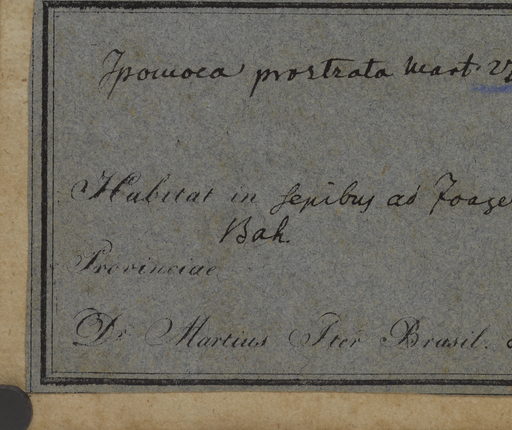 Ipomoea prostrata Mart.
Habitat in sepibus ad Joaze
Bah.
Provinciae
Dr. Martius Iter Brasil.